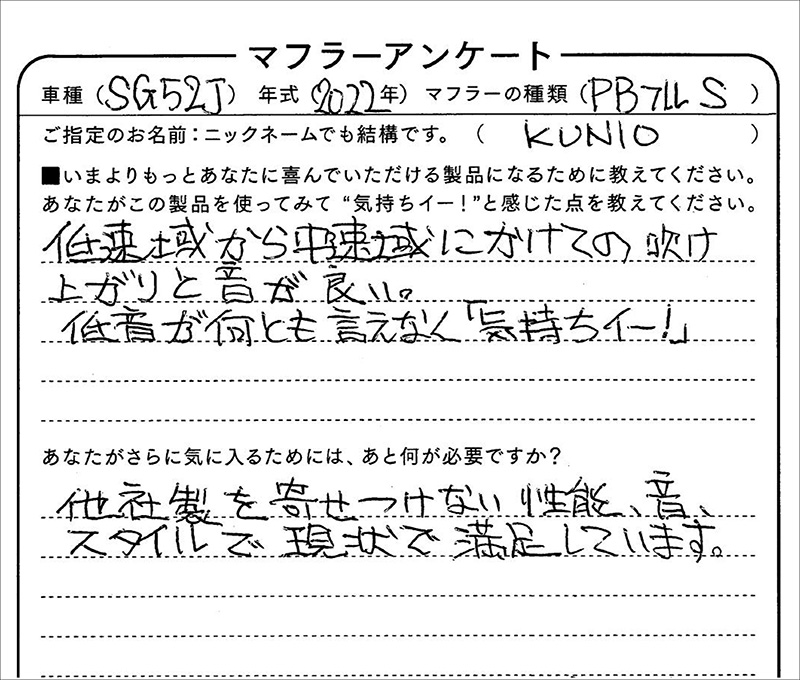 マフラーアンケート
車種（SG52J） 年式（2022年） マフラーの種類（PBフルS）
ご指定のお名前：ニックネームでも結構です。（ KUNIO ）
■いまよりもっとあなたに喜んでいただける製品になるために教えてください。
あなたがこの製品を使ってみて“気持ちイー！”と感じた点を教えてください。
低速域から中速域にかけての吹け
上がりと音が良い。
低音が何とも言えなく「気持ちイー！」
あなたがさらに気に入るためには、あと何が必要ですか？
他社製を寄せつけない性能、音、
スタイルで現状で満足しています。